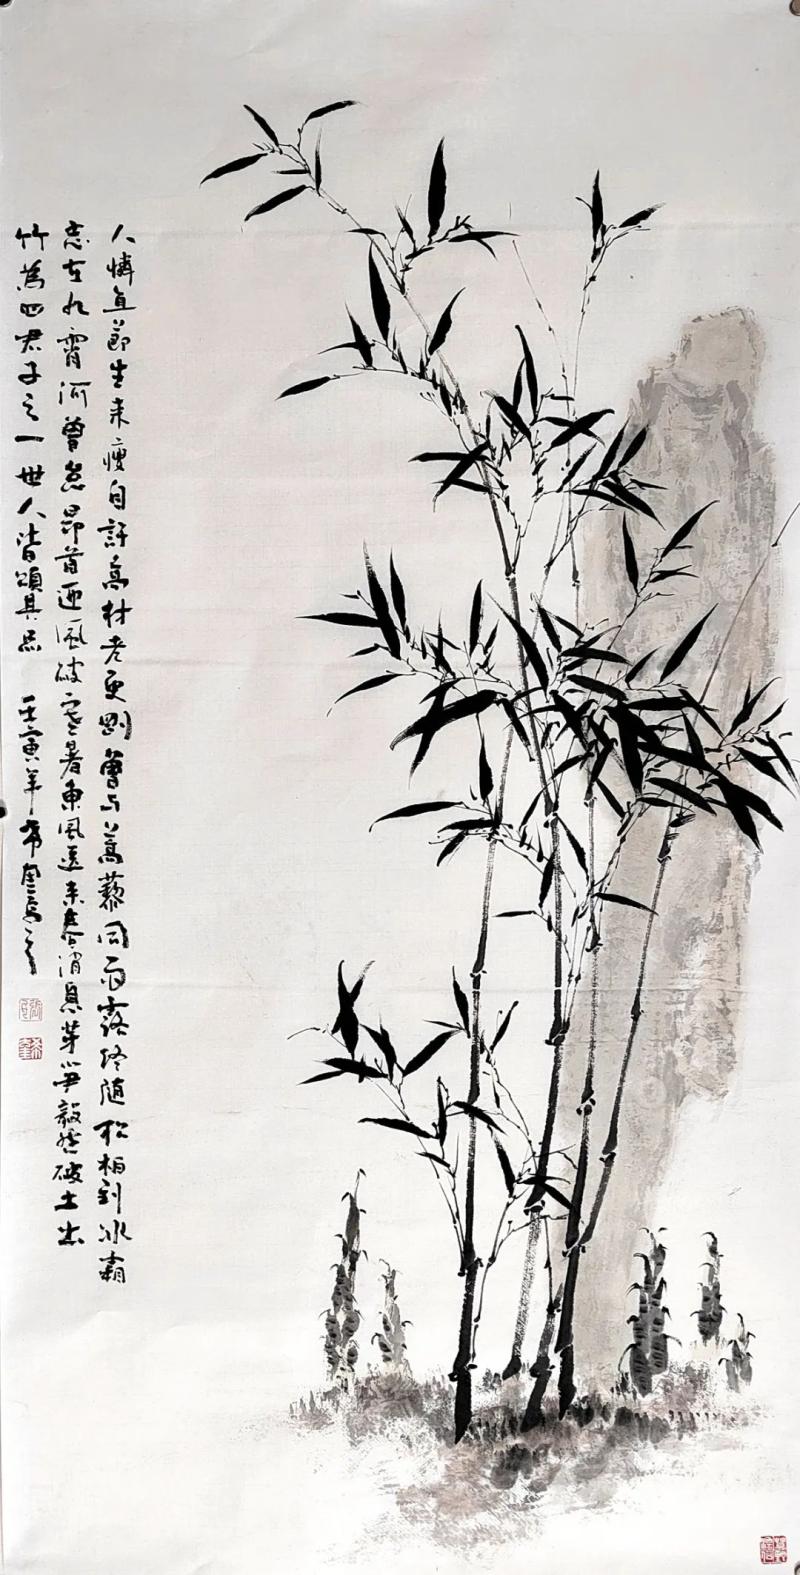 人憐直節生来瘦自許高材老更剛曾与蒿藜同雨露終随松柏到冰霜
志在九霄何曾怠昂首迎風破寒暑東風送来春消息芽笋毅然破土出
竹為四君子之一世人皆頌其品 壬寅年希奎寫之